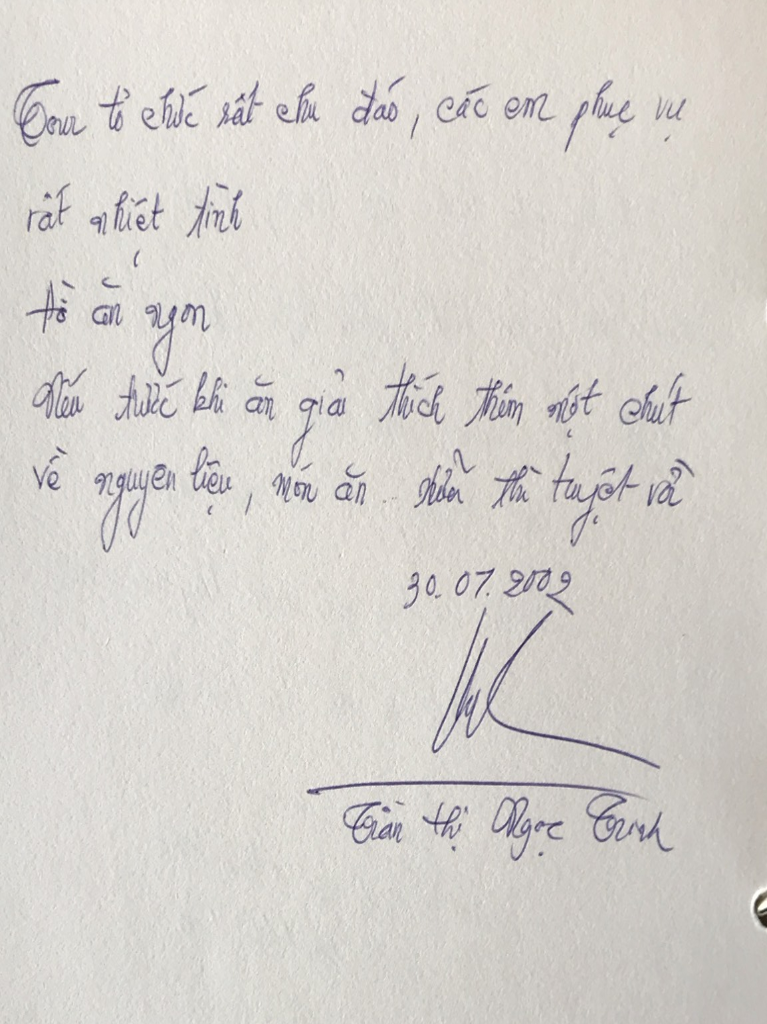 Tour tổ chức rất chu đáo, các em phục vụ
rất nhiệt tình
đồ ăn ngon
Nếu trước khi ăn giải thích thêm một chút
về nguyên liệu, món ăn .. nữa thì tuyệt vời
30.07.2002
Trần Thị Ngọc Trinh